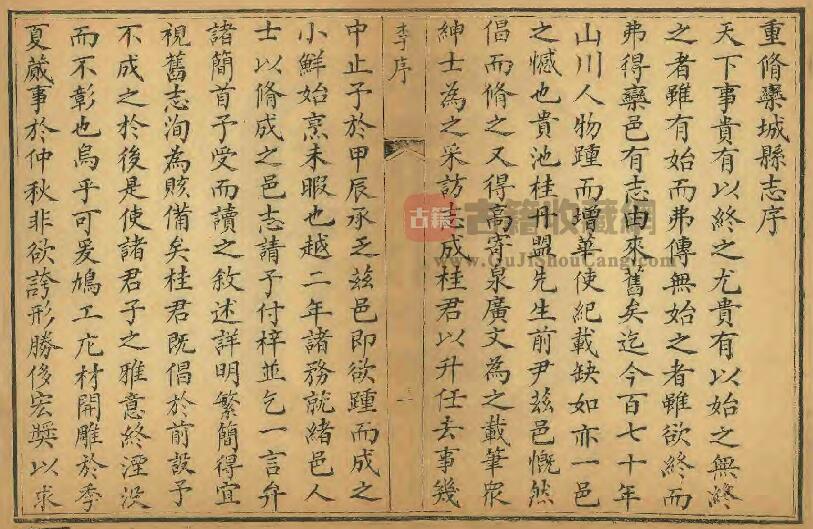 重脩欒城縣志序
天下事貴有以終之尤貴有以始之無終
之者雖有始而弗傳無始之者雖欲終而
弗得欒邑有志由來舊矣迄今百七十年
山川人物踵而增華使紀載缺如亦一邑
之憾也貴池桂丹盟先生前尹兹邑慨然
倡而脩之又得高寄泉廣文為之載筆眾
紳士為之采訪志成桂君以升任去事幾
李序
一
中止予於甲辰承乏兹邑即欲踵而成之
小鮮始烹未暇也越二年諸務就緒邑人
士以脩成之邑志請予付梓並乞一言弁
諸簡首予受而讀之敘述詳明繁簡得宜
視舊志洵為賅備矣桂君既倡於前設予
不成之於後是使諸君子之雅意終湮没
而不彰也烏乎可爰鳩工庀材開雕於季
夏蕆事於仲秋非欲誇形勝侈宏奬以求
古籍
古籍收藏網
www.GuJiShouCang.com